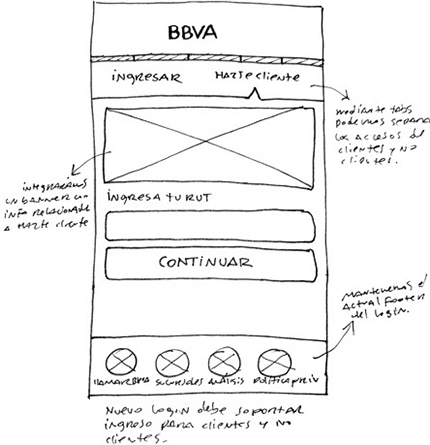 BBVA
INGRESAR
HAZTE cliente
mediante tabs
podemos separar
los accesos de
clientes y no
clientes.
integraremos
un banner con
info relacionada
a HAZTE cliente
INGRESA TU RUT
CONTINUAR
MANTENEMOS el
actual footer
del login.
LLAMAR BBVA
SUCURSALES
ANÁLISIS
POLÍTICA PRIV
NUEVO LOGIN debe soportar
ingreso para clientes y no
clientes.